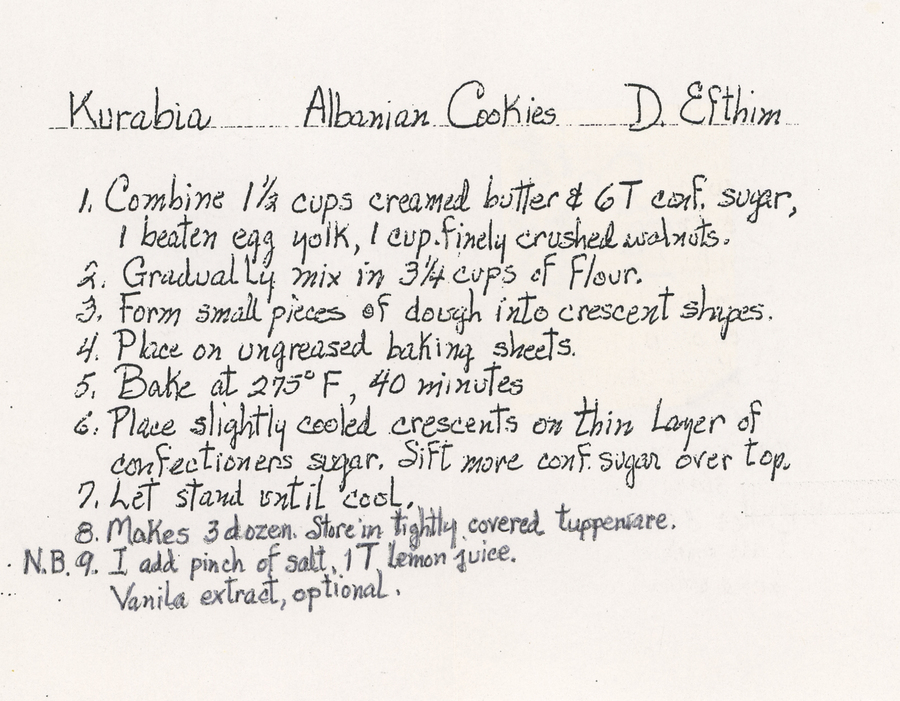 Kurabia Albanian Cookies D. Efthim
1. Combine 1½ cups creamed butter & 6T conf. sugar,
1 beaten egg yolk, 1 cup finely crushed walnuts.
2. Gradually mix in 3¼ cups of flour.
3. Form small pieces of dough into crescent shapes.
4. Place on ungreased baking sheets.
5. Bake at 275° F, 40 minutes
6. Place slightly cooled crescents on thin Layer of
confectioners sugar. Sift more conf. sugar over top.
7. Let stand until cool.
8. Makes 3 dozen. Store in tightly covered tupperware.
N.B. 9. I add pinch of salt, 1T Lemon juice.
Vanila extract, optional.